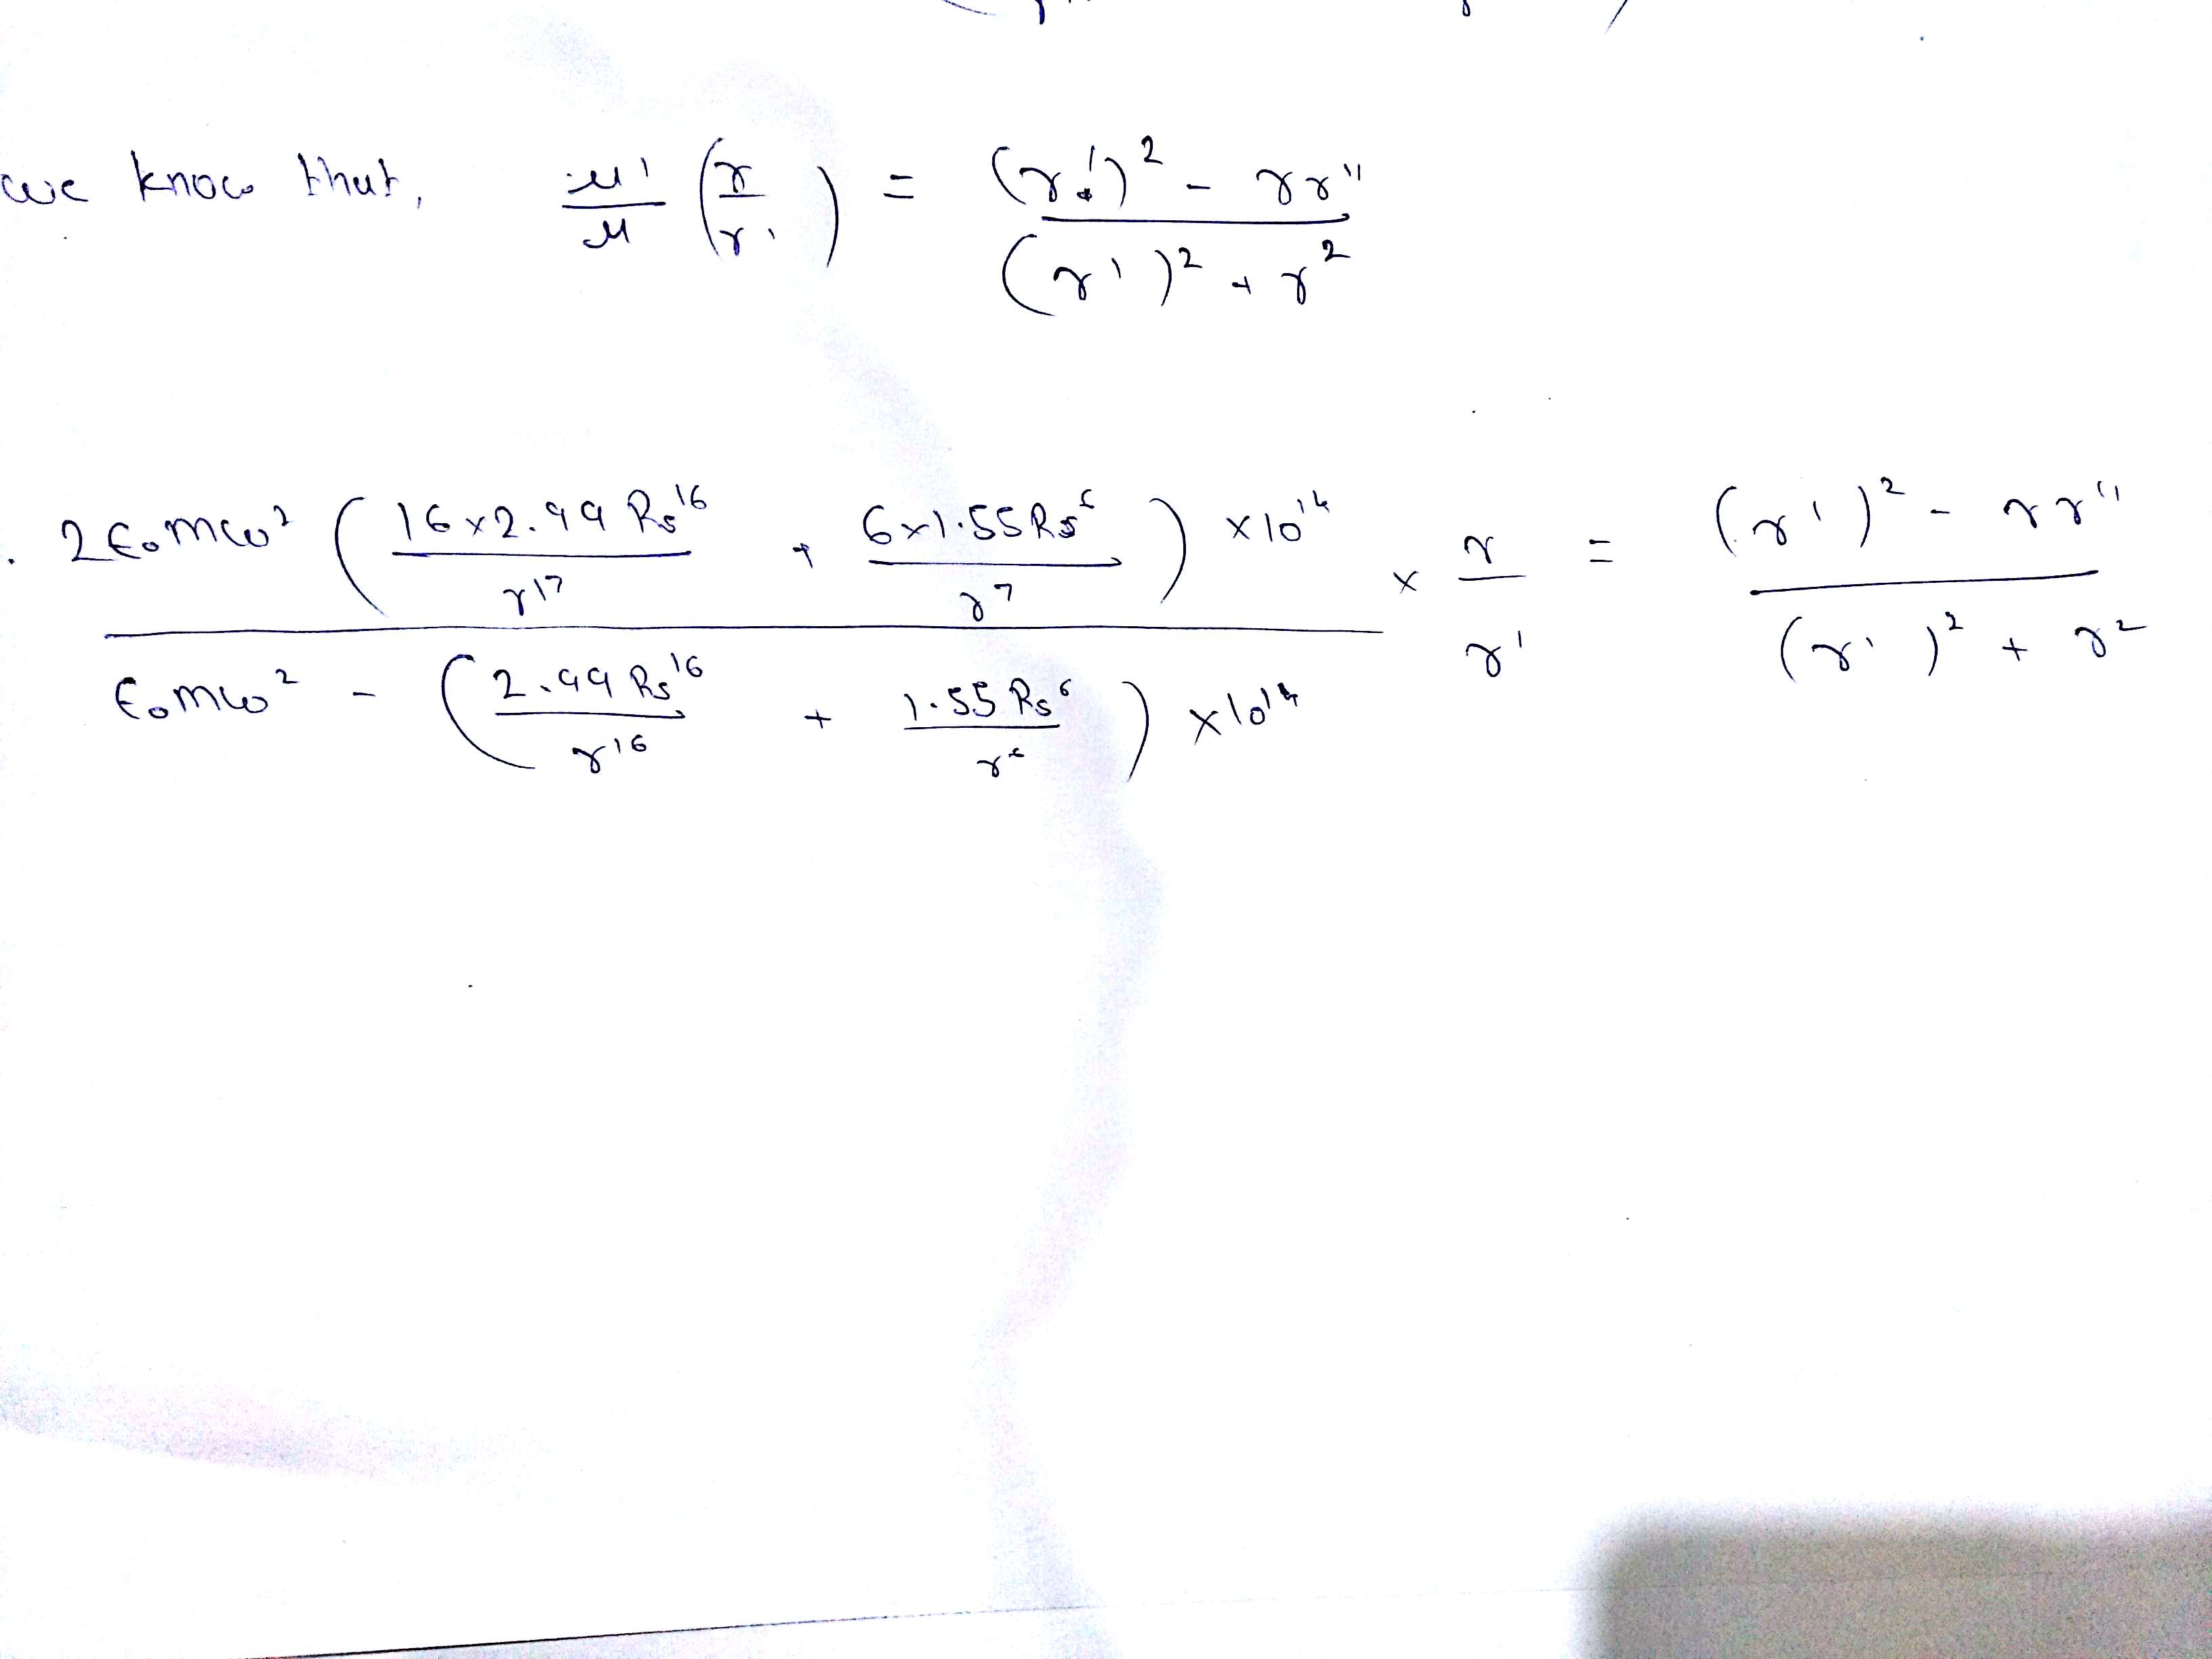 we know that, μ'/μ (r/r') = ((r')² - rr'')/((r')² + r²)
2ϵ₀mω² (16×2.99 Rs¹⁶/r¹⁷ + 6×1.55Rs⁶/r⁷) ×10¹⁴ / ϵ₀mω² - (2.99 Rs¹⁶/r¹⁶ + 1.55 Rs⁶/r⁶) ×10¹⁴ × r/r' = ((r')² - rr'')/((r')² + r²)